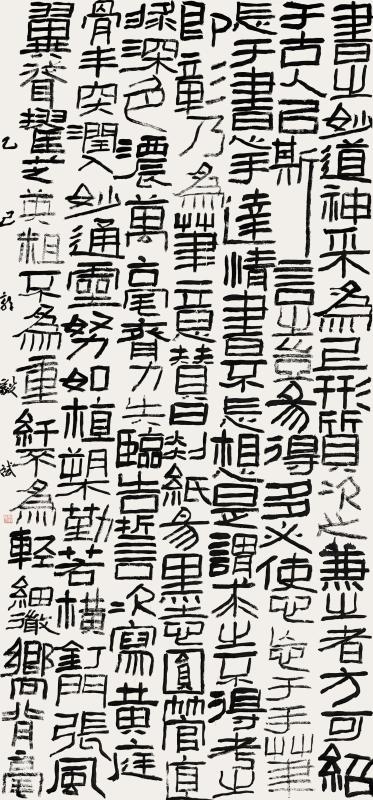 書之妙道神采為上形質次之兼之者方可紹
于古人以斯言之豈易多得必使心忘于手筆
忘于書筆達情書不忘想是謂求之不得考之
即彰乃為筆意贊曰剡紙易墨心圓管直
漿深色濃萬毫齊力先臨告誓次寫黃庭
骨丰肉潤入妙通靈努如植槊勒若橫釘開張風
翼聳擢芝英粗不為重纖不為輕細微嚮背毫
乙巳郭毅斌